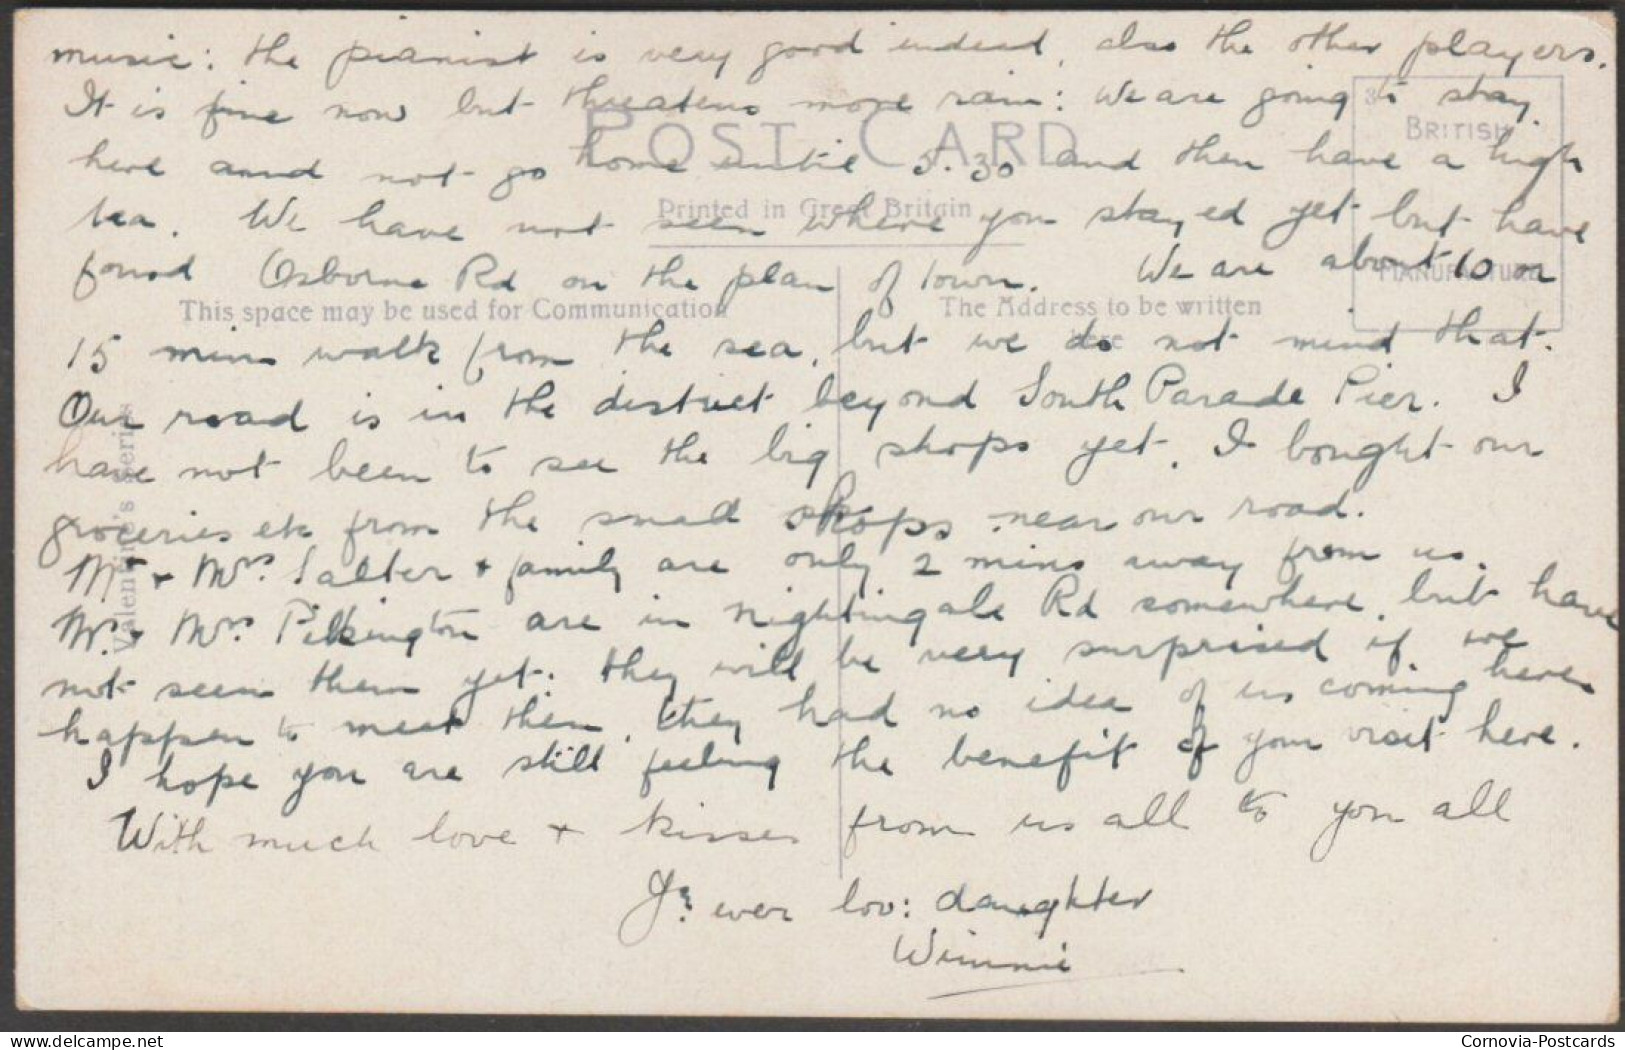 music: the pianist is very good indeed, also the other players.
It is fine now but threatens more rain: We are going to stay
here annd not go home until 5.30 and then have a high
tea. We have not seen where you stayed yet but have
found Osborne Rd on the plan of town. We are about 10 or
15 mins walk from the sea, but we do not mind that.
Our road is in the district beyond South Parade Pier. I
have not been to see the big shops yet, I bought our
groceries etc from the small shops near our road.
Mr + Mrs. Salter + family are only 2 mins away from us.
Mr. + Mrs. Pilkington are in Nightingale Rd somewhere, but have
not seen them yet: they will be very surprised if we
happen to meet them, they had no idea of us coming here.
I hope you are still feeling the benefit of your visit here.
With much love + kisses from us all to you all
Yr. ever lov: daughter
Winnie
POST CARD
Printed in Great Britain
This space may be used for Communication
The Address to be written
here
BRITISH
MANUFACTURE
Valentine's Series
Cornovia-Postcards
delcampe.net